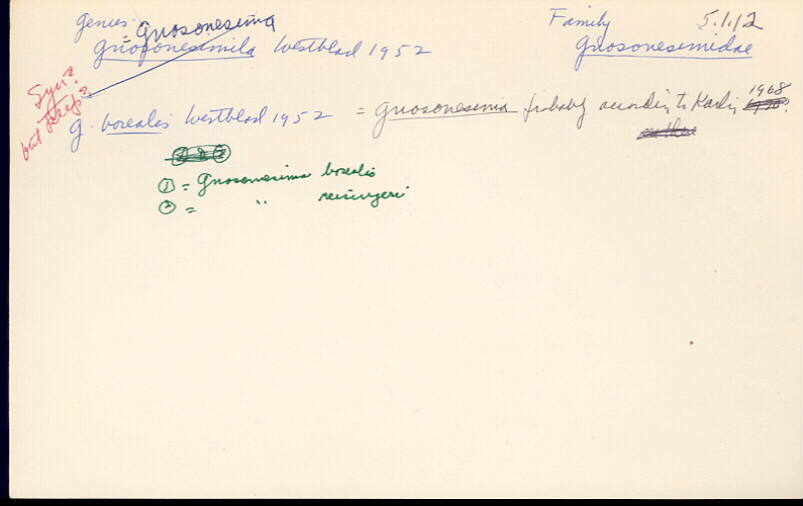 Genus Family 5.1.12
= Gnosonesima
Gnosonesimila Westblad 1952 Gnosonesimidae
Syn?
but keep?
G. borealis Westblad 1952 = Gnosonesima probably according to Karling 1968
① = Gnosonesima borealis
② = " reisingeri